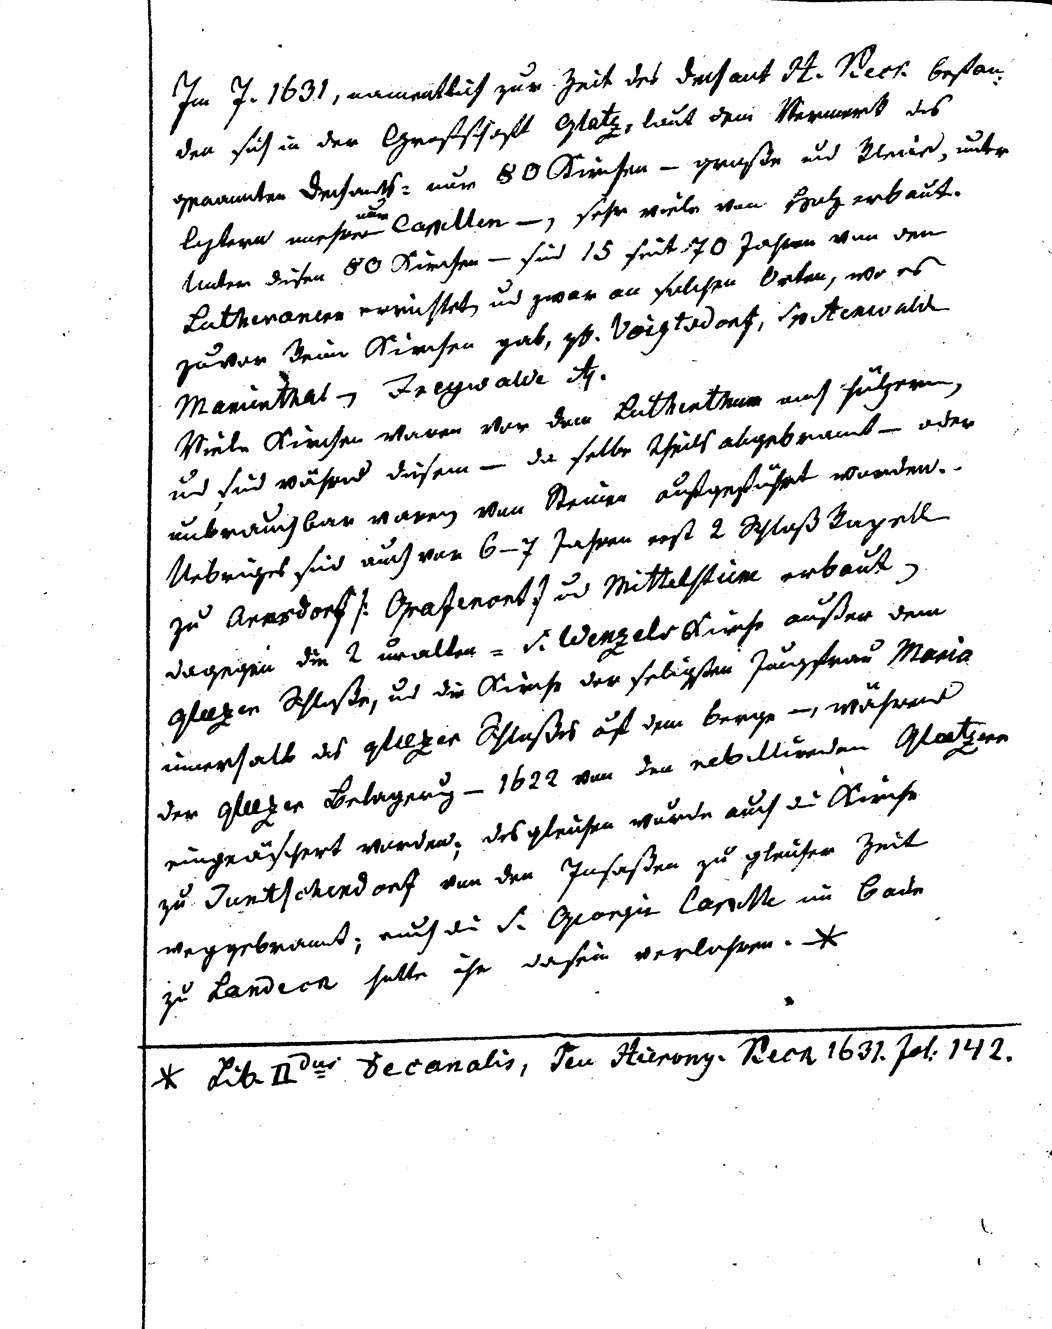 Im J. 1631, namentlich zur Zeit des Dechant H. Keck befan-
den sich in der Graffschaft Glatz, laut dem Vermerk des
genannten Dechants = nur 80 Kirchen – große und kleine, unter
letztern mehrere nur Capellen –, sehr viele von Holz erbaut.
Unter diesen 80 Kirchen – sind 15 seit 70 Jahren von den
Lutheranern errichtet, und zwar an solchen Orten, wo es
zuvor keine Kirchen gab, zb. Voigtsdorf, Spätenwalde
Marienthal –, Freywalde
Viele Kirchen waren vor dem Lutherthum auch hölzern,
und sind während diesem – da selbe theils abgebrannt – oder
unbrauchbar waren von Steinen aufgeführt worden.
Uebriges sind auch vor 6–7 Jahren erst 2 Schloß Kapell
zu Arnsdorf /: Grafenort :/ und Mittelsteine erbaut,
dagegen die 2 uralten = S. Wenzels Kirche außer dem
Glatzer Schloße, und die Kirche der seligsten Jungfrau Maria
innerhalb des Glatzer Schloßes auf dem Berge –, während
der Glatzer Belagerung – 1622 von den rebellirenden Glatzern
eingeäschert worden; desgleichen wurde auch die Kirche
zu Iuntschendorf von den Insaßen zu gleicher Zeit
weggebrannt; auch die S. Georgii Capelle im Bade
zu Landeck hatte ihr Dasein verlohren. *
* Lib. II Dus Decanalis, Hierony. Keck 1631. fol: 142.